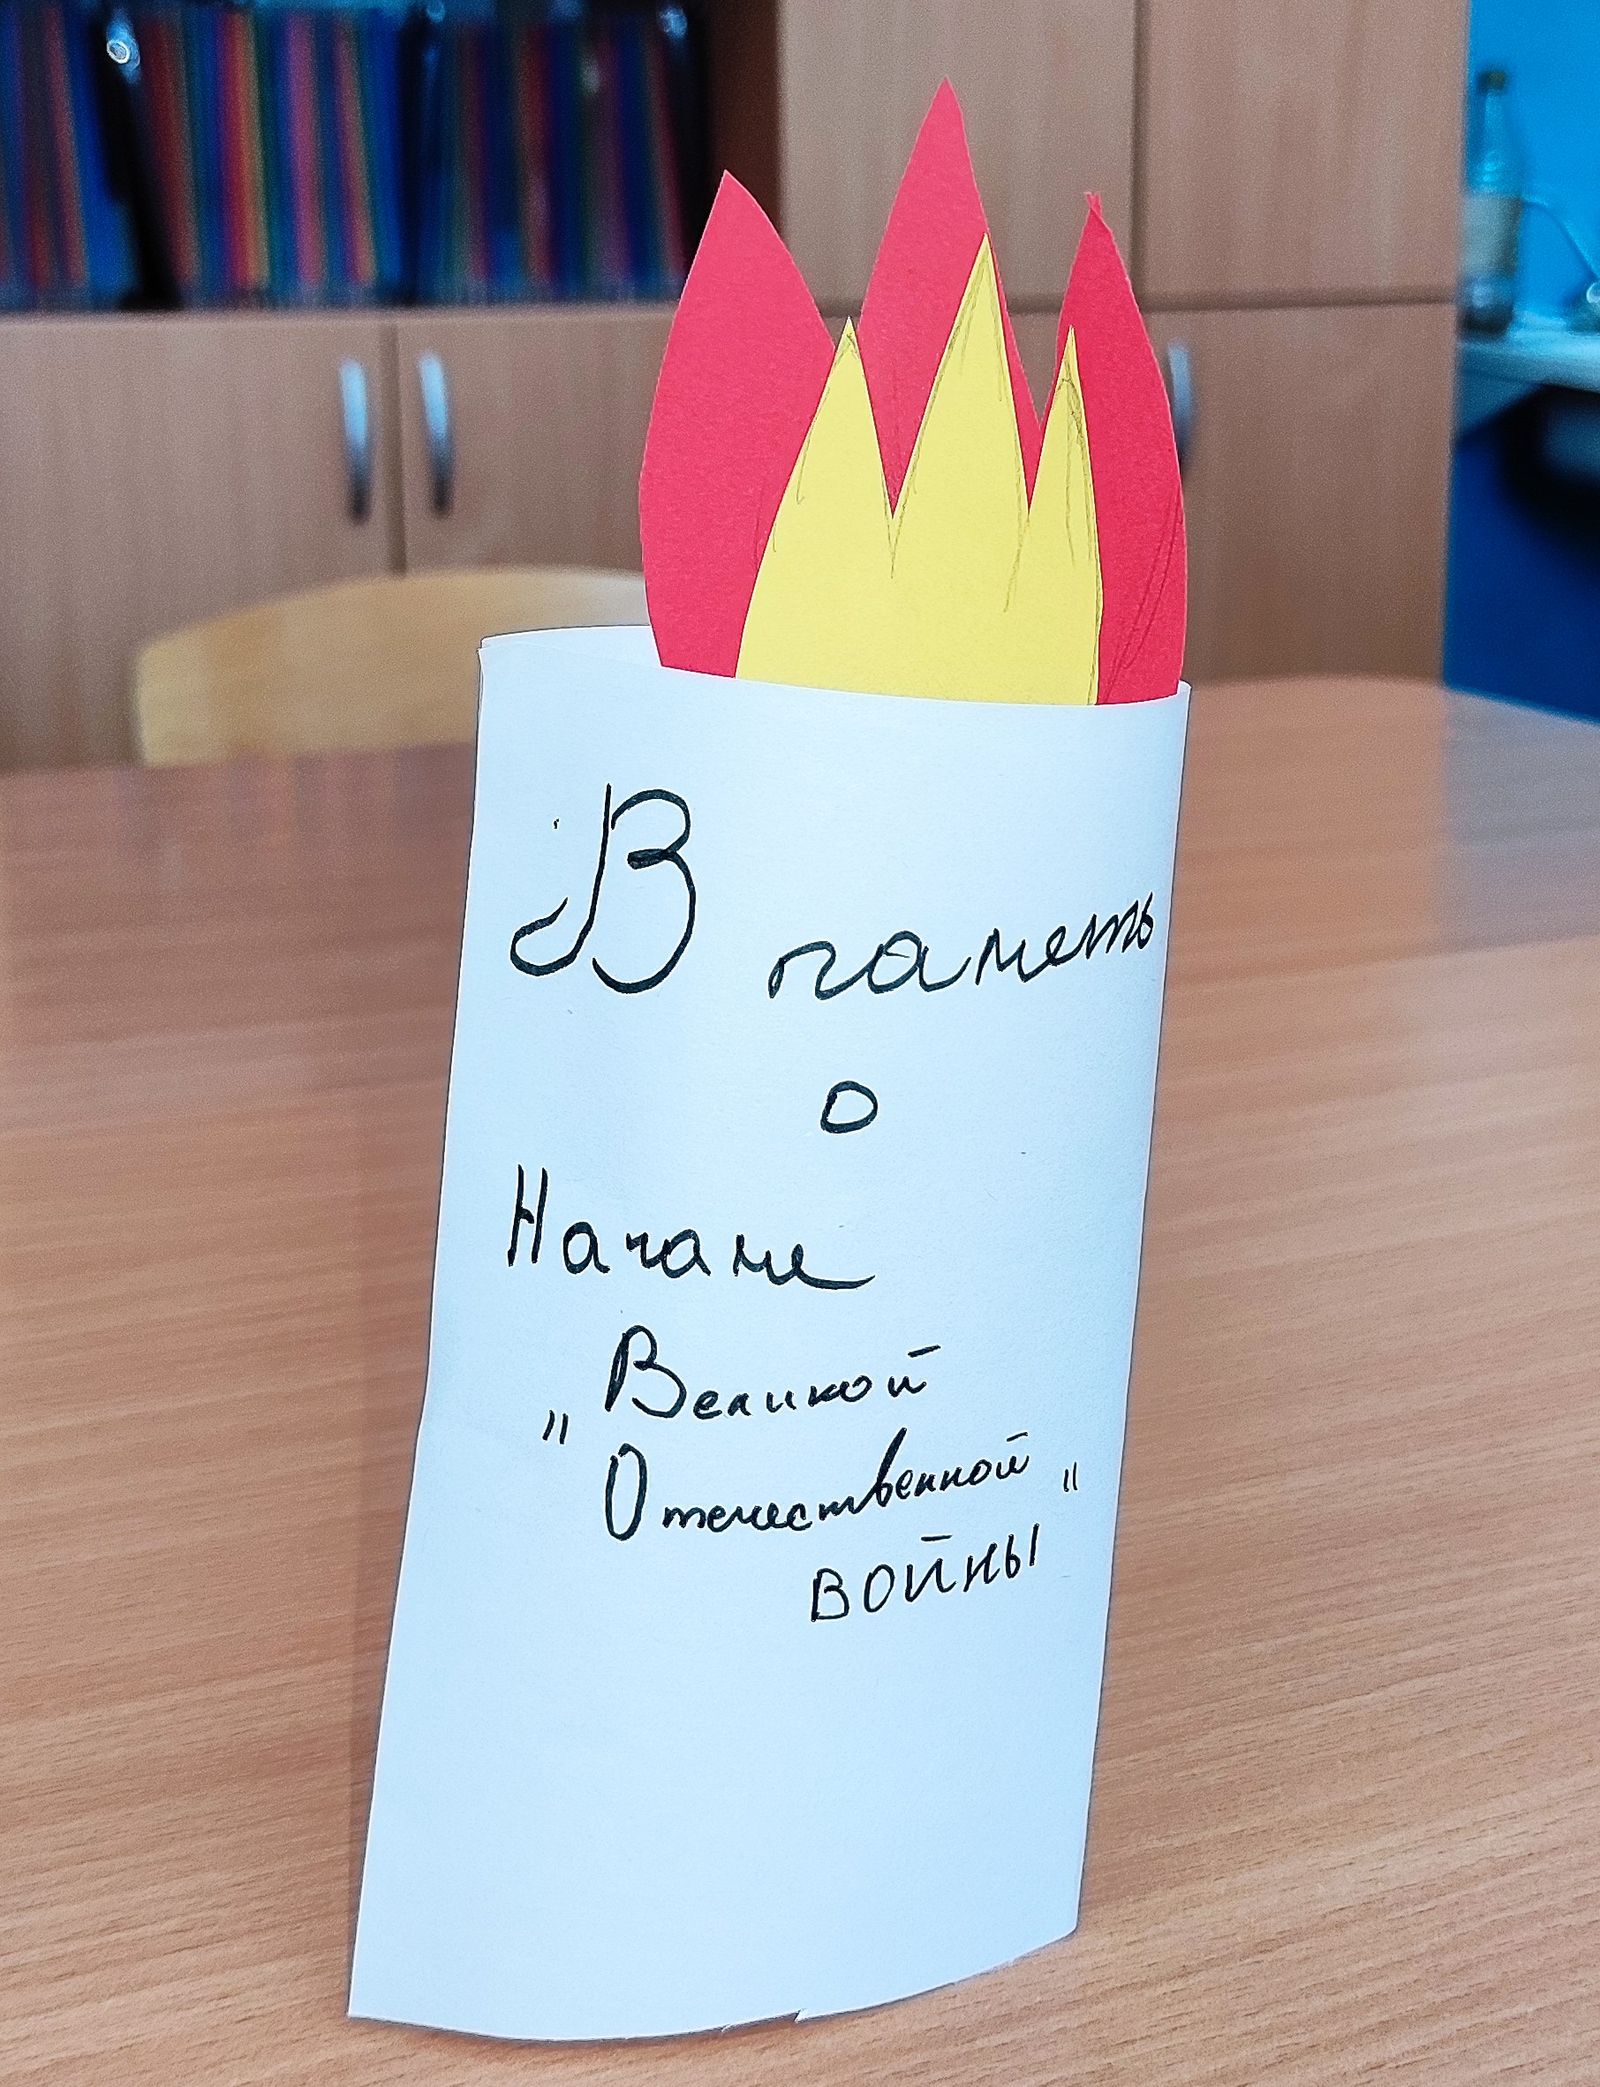 В паметь
о
Начале
"Великой
Отечественной"
войны